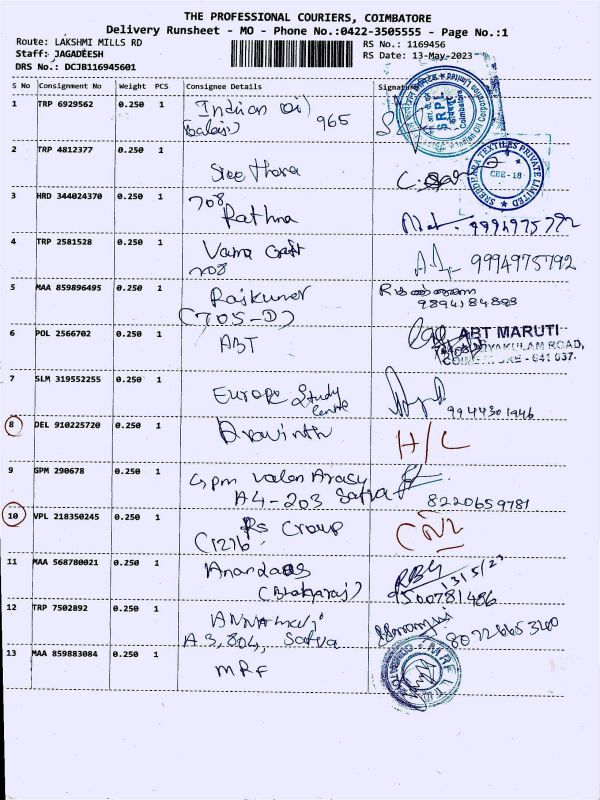 THE PROFESSIONAL COURIERS, COIMBATORE
Delivery Runsheet - MO - Phone No.:0422-3505555 - Page No.:1
Route: LAKSHMI MILLS RD
RS No.: 1169456
Staff: JAGADEESH
RS Date: 13-May-2023
DRS No.: DCJB116945601
S No Consignment No Weight PCS Consignee Details Signature
1 TRP 6929562 0.250 1 Indian Oil 965
SRPL Coimbatore
2 TRP 4812377 0.250 1 Sree Thara
SREEDHARA TEXTILES PRIVATE LIMITED
CBE-18
3 HRD 344024370 0.250 1 708 Rathna 9994975792
4 TRP 2581528 0.250 1 Craft 708 9994975792
5 MAA 859896495 0.250 1 Rajkumar
(705-D)
6 POL 2566702 0.250 1 ABT
ABT MARUTI
7 SLM 319552255 0.250 1 Europe Study
Centre
9944301946
8 DEL 910225720 0.250 1 Aravinth H/C
9 GPM 290678 0.250 1 Gpm Valan Arasu
A4-203 Satva 8220659781
10 VPL 218350245 0.250 1 Rs Group
11 MAA 568780021 0.250 1 Anandaas
(Bhagyaraj)
13/5/23
12 TRP 7502892 0.250 1
A3, 804, Satva
13 MAA 859883084 0.250 1 MRF